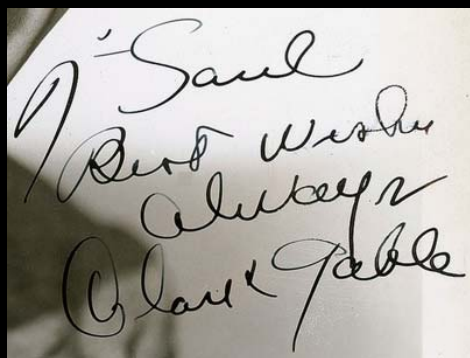 To Saul
Best Wishes
always
Clark Gable